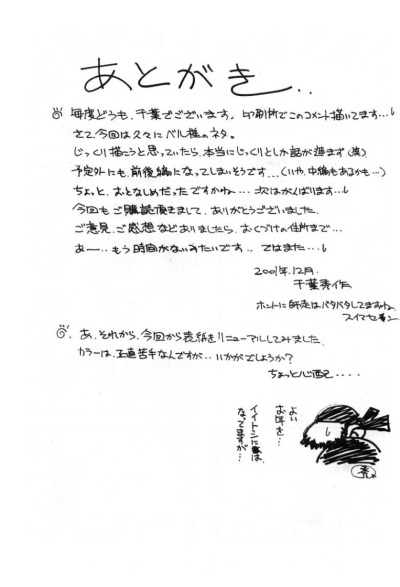 あとがき..
毎度どうも、千葉でございます。印刷所でこのコメント描いてます...
さて、今回は久々にベル様のネタ。
じっくり描こうと思っていたら、本当にじっくりとしか話が進まず(笑)
予定外にも、前後編になってしまいそうです...(いや、中編もあるかも...)
ちょっと、おとなしめだったですかね... 次はがんばります...
今回も、ご購読頂きまして、ありがとうございました。
ご意見、ご感想などありましたら、おくづけの住所まで...
あー... もう時間がないみたいです.. ではまた...
2001年.12月.
千葉秀作
ホントに師走はバタバタしてますね。
スイマセン
あ、それから、今回から表紙をリニューアルしてみました
カラーは、正直苦手なんですが..いかがでしょうか?
ちょっと心配....
よい
お年を...
イイトシには、
なってますが...